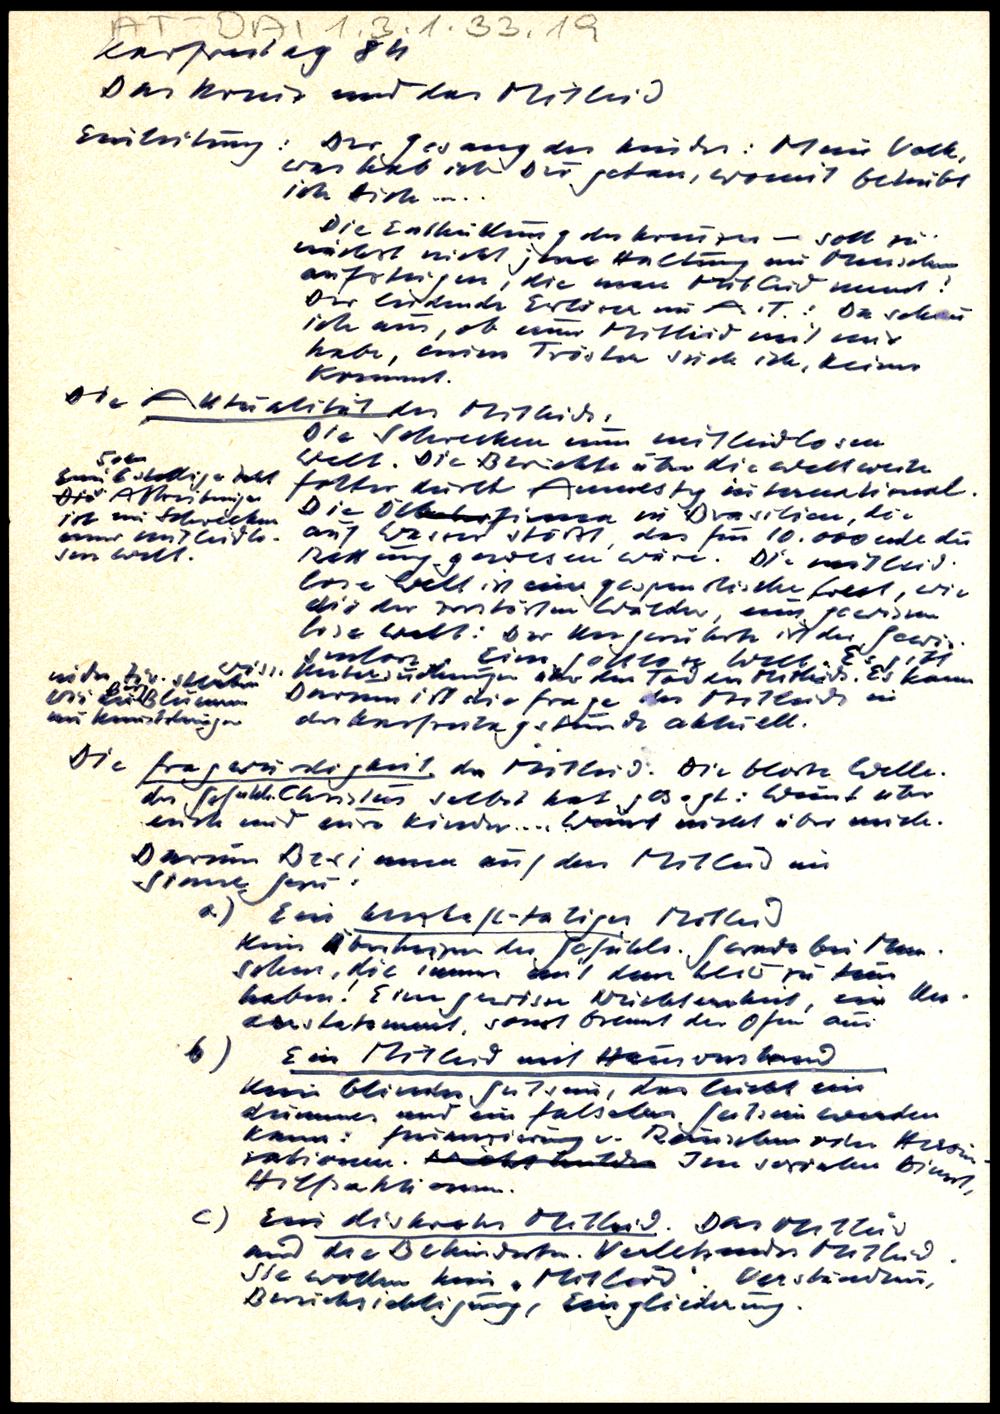 AT-DAI 1.3.1.33.19
Karfreitag 84
Das Kreuz und das Mitleid
Einleitung: Der Gesang des Kreuzes: Mein Volk,
was hab ich Dir getan, womit betrübt
ich Dich ....
Die Enthüllung des Kreuzes – soll zu
nächst nicht jene Haltung im Menschen
aufsteigen, die man Mitleid nennt!
Der leidende Erlöser im A.T.: Da schau
ich aus, ob einer Mitleid mit mir
habe, einen Tröster suche ich, keiner
kommt.
Die Aktualität des Mitleids:
Die Schrecken einer mitleidlosen
Welt. Die Berichte über die weltweite
Folter durch Amnesty international.
Die Ölfirma in Brasilien, die
auf Wasser stößt, das für 10.000ende die
Rettung gewesen wäre. Die mitleid-
lose Welt ist eine gespenstische Welt, wie
die der zerstörten Wälder, eine gewissen
lose Welt: Der Ungerührte ist der Gewis-
senlose. Eine gottlose Welt. Es gibt
Untersuchungen über den Tod des Mitleids. Es kann
Darum ist die Frage des Mitleids in
der Karfreitagsstunde aktuell.
Eine 6stellige Zahl
Abtreibungen
ist ein Schrecken
einer mitleidlo-
sen Welt.
sterben
wie die Blumen
Die Fragwürdigkeit des Mitleids. Die bloße Welle
des Gefühls. Christus selbst hat gesagt: Weint über
euch und eure Kinder.... Weint nicht über mich.
Darum Besinnen auf das Mitleid im
Sinne Jesu:
a) Ein herzhaft-tätiges Mitleid
Kein Überborden des Gefühls. Gerade bei Men-
schen, die immer mit dem Leid zu tun
haben! Eine gewisse Nüchternheit, ein Un-
derstatement, sonst brennt der Ofen aus
b) Ein Mitleid mit Hausverstand
Kein blindes Gutsein, das leicht ein
dummes und ein falsches Gutsein werden
kann: Finanzierung v. Räuschen oder Heroin-
rationen. Im sozialen Dienst,
Hilfsaktionen.
c) Ein diskretes Mitleid. Das Mitleid
und die Behinderten. Verletzendes Mitleid.
Sie wollen kein "Mitleid". Verständnis,
Berücksichtigung, Eingliederung.